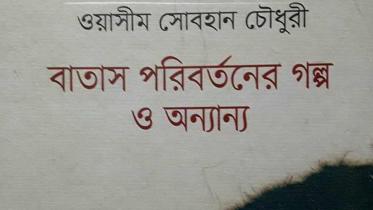 ওয়াসীম সোবহান চৌধুরী
বাতাস পরিবর্তনের গল্প
ও অন্যান্য